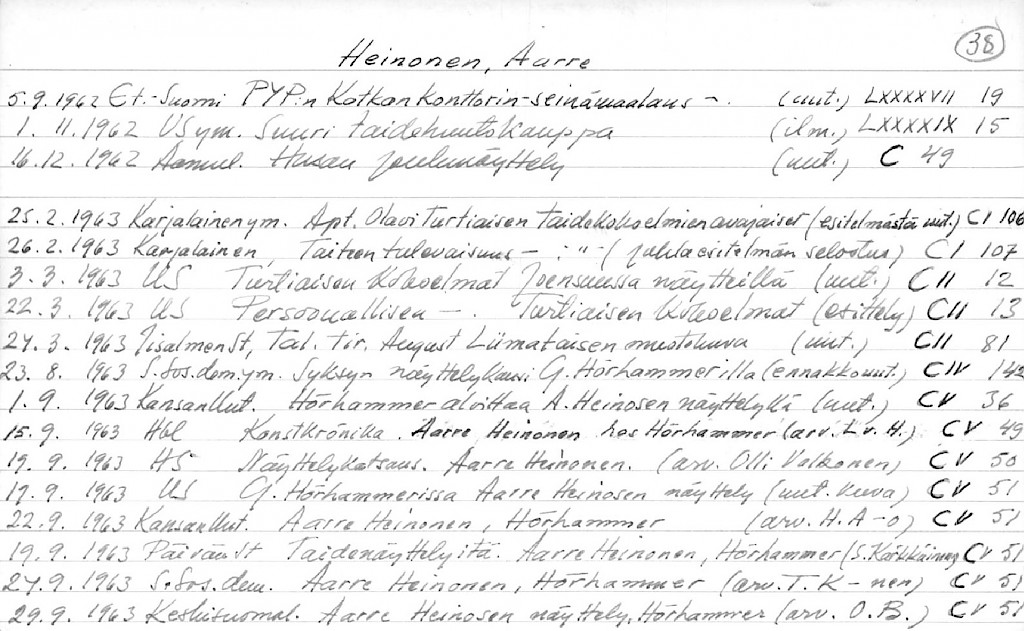 38
Heinonen, Aarre
5.9.1962 Et.-Suomi PYP:n Kotkan konttorin seinämaalaus -. (uut.) LXXXXVII 19
1.11.1962 US ym. Suuri taidehuutokauppa (ilm.) LXXXXIX 15
16.12.1962 Aamul. Husan joulunäyttely (uut.) C 49
25.2.1963 Karjalainen ym. Apt. Olavi Turtiaisen taidekokoelmien avajaiset (esitelmästä uut.) CI 106
26.2.1963 Karjalainen, Taiteen tulevaisuus - : " - ( juhlaesitelmän selostus) CI 107
3.3.1963 US Turtiaisen kokoelmat Joensuussa näytteillä (uut.) CII 12
22.3.1963 US Persoonallisen -. Turtiaisen kokoelmat (esittely) CII 13
27.3.1963 Iisalmen St, Tal. tir. August Liimataisen muotokuva (uut.) CII 81
23.8.1963 S.Sos.dem. ym. Syksyn näyttelykausi G. Hörhammerilla (ennakkouut.) CIV 142
1.9.1963 KansanUut. Hörhammer aloittaa A. Heinosen näyttelyllä (uut.) CV 36
15.9.1963 Hbl Konstkrönika. Aarre Heinonen hos Hörhammer (arv. L.v.H.) CV 49
19.9.1963 HS Näyttelykatsaus. Aarre Heinonen. (arv. Olli Valkonen) CV 50
19.9.1963 US G. Hörhammerissa Aarre Heinosen näyttely (uut. kuva) CV 51
22.9.1963 KansanUut. Aarre Heinonen, Hörhammer (arv. H. A-o) CV 51
19.9.1963 PäivänSt Taidenäyttelyitä. Aarre Heinonen, Hörhammer (S. Karkkainen) CV 51
27.9.1963 S.Sos.dem. Aarre Heinonen, Hörhammer (arv. T. K-nen) CV 51
29.9.1963 Keskisuomal. Aarre Heinosen näyttely, Hörhammer (arv. O.B.) CV 51